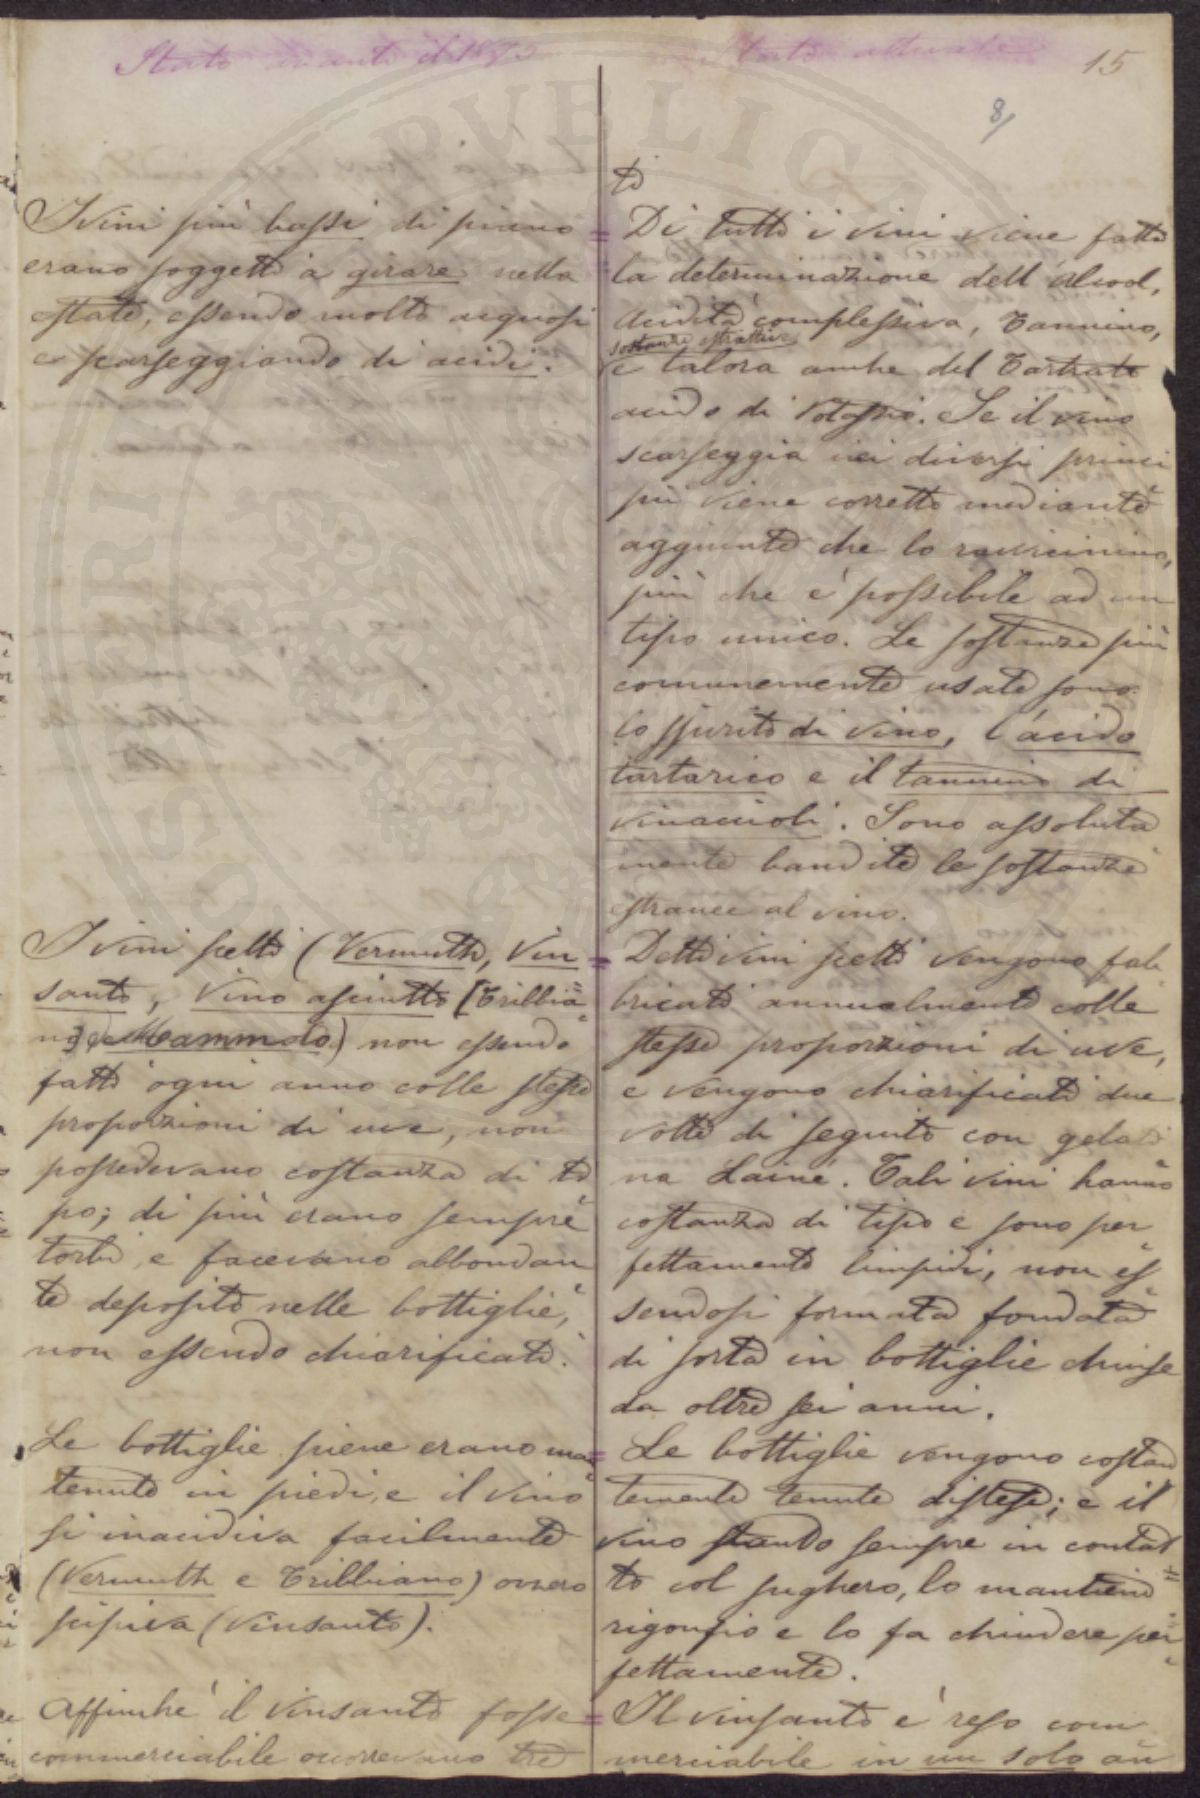 Stato avanti il 1875
I vini più bassi di piano
erano soggetti a girare nella
estate, essendo molto acquosi
e scarseggiando di acidi.
I vini scelti (Vermuth, Vin
santo, Vino asciutto [Trebbia=
no] e Mammolo) non essendo
fatti ogni anno colle stesse
proporzioni di uve, non
possedevano costanza di ti
po; di più erano sempre
torbi, e facevano abbondan
te deposito nelle bottiglie,
non essendo chiarificati.
Le bottiglie piene erano man
tenute in piedi, e il vino
si inacidiva facilmente
(Vermuth e Trebbiano) ovvero
scipiva (Vinsanto).
Affinché il Vinsanto fosse
commerciabile occorrevano tre
Stato attuale
15
8/
ti
= Di tutti i vini viene fatta
la determinazione dell'Alcool,
Acidità complessiva, Tannino,
sostanze estrattive
e talora anche del Tartrato
acido di Potassio. Se il vino
scarseggia nei diversi princi
pii viene corretto mediante
aggiunte che lo ravvicinino,
più che è possibile ad un
tipo unico. Le sostanze più
comunemente usate sono:
lo spirito di vino, l'acido
tartarico e il tannino di
vinaccioli. Sono assoluta
mente bandite le sostanze
estranee al vino.
= Detti vini scelti vengono fab
bricati annualmente colle
stesse proporzioni di uve,
e vengono chiarificati due
volte di seguito con gelati
na Lainé. Tali vini hanno
costanza di tipo e sono per
fettamente limpidi, non es
sendosi formata fondata
di sorta in bottiglie chiuse
da oltre sei anni.
= Le bottiglie vengono costan
temente tenute distese; e il
vino stando sempre in contat
to col sughero, lo mantiene
rigonfio e lo fa chiudere per
fettamente.
= Il vinsanto è reso com
merciabile in un solo an